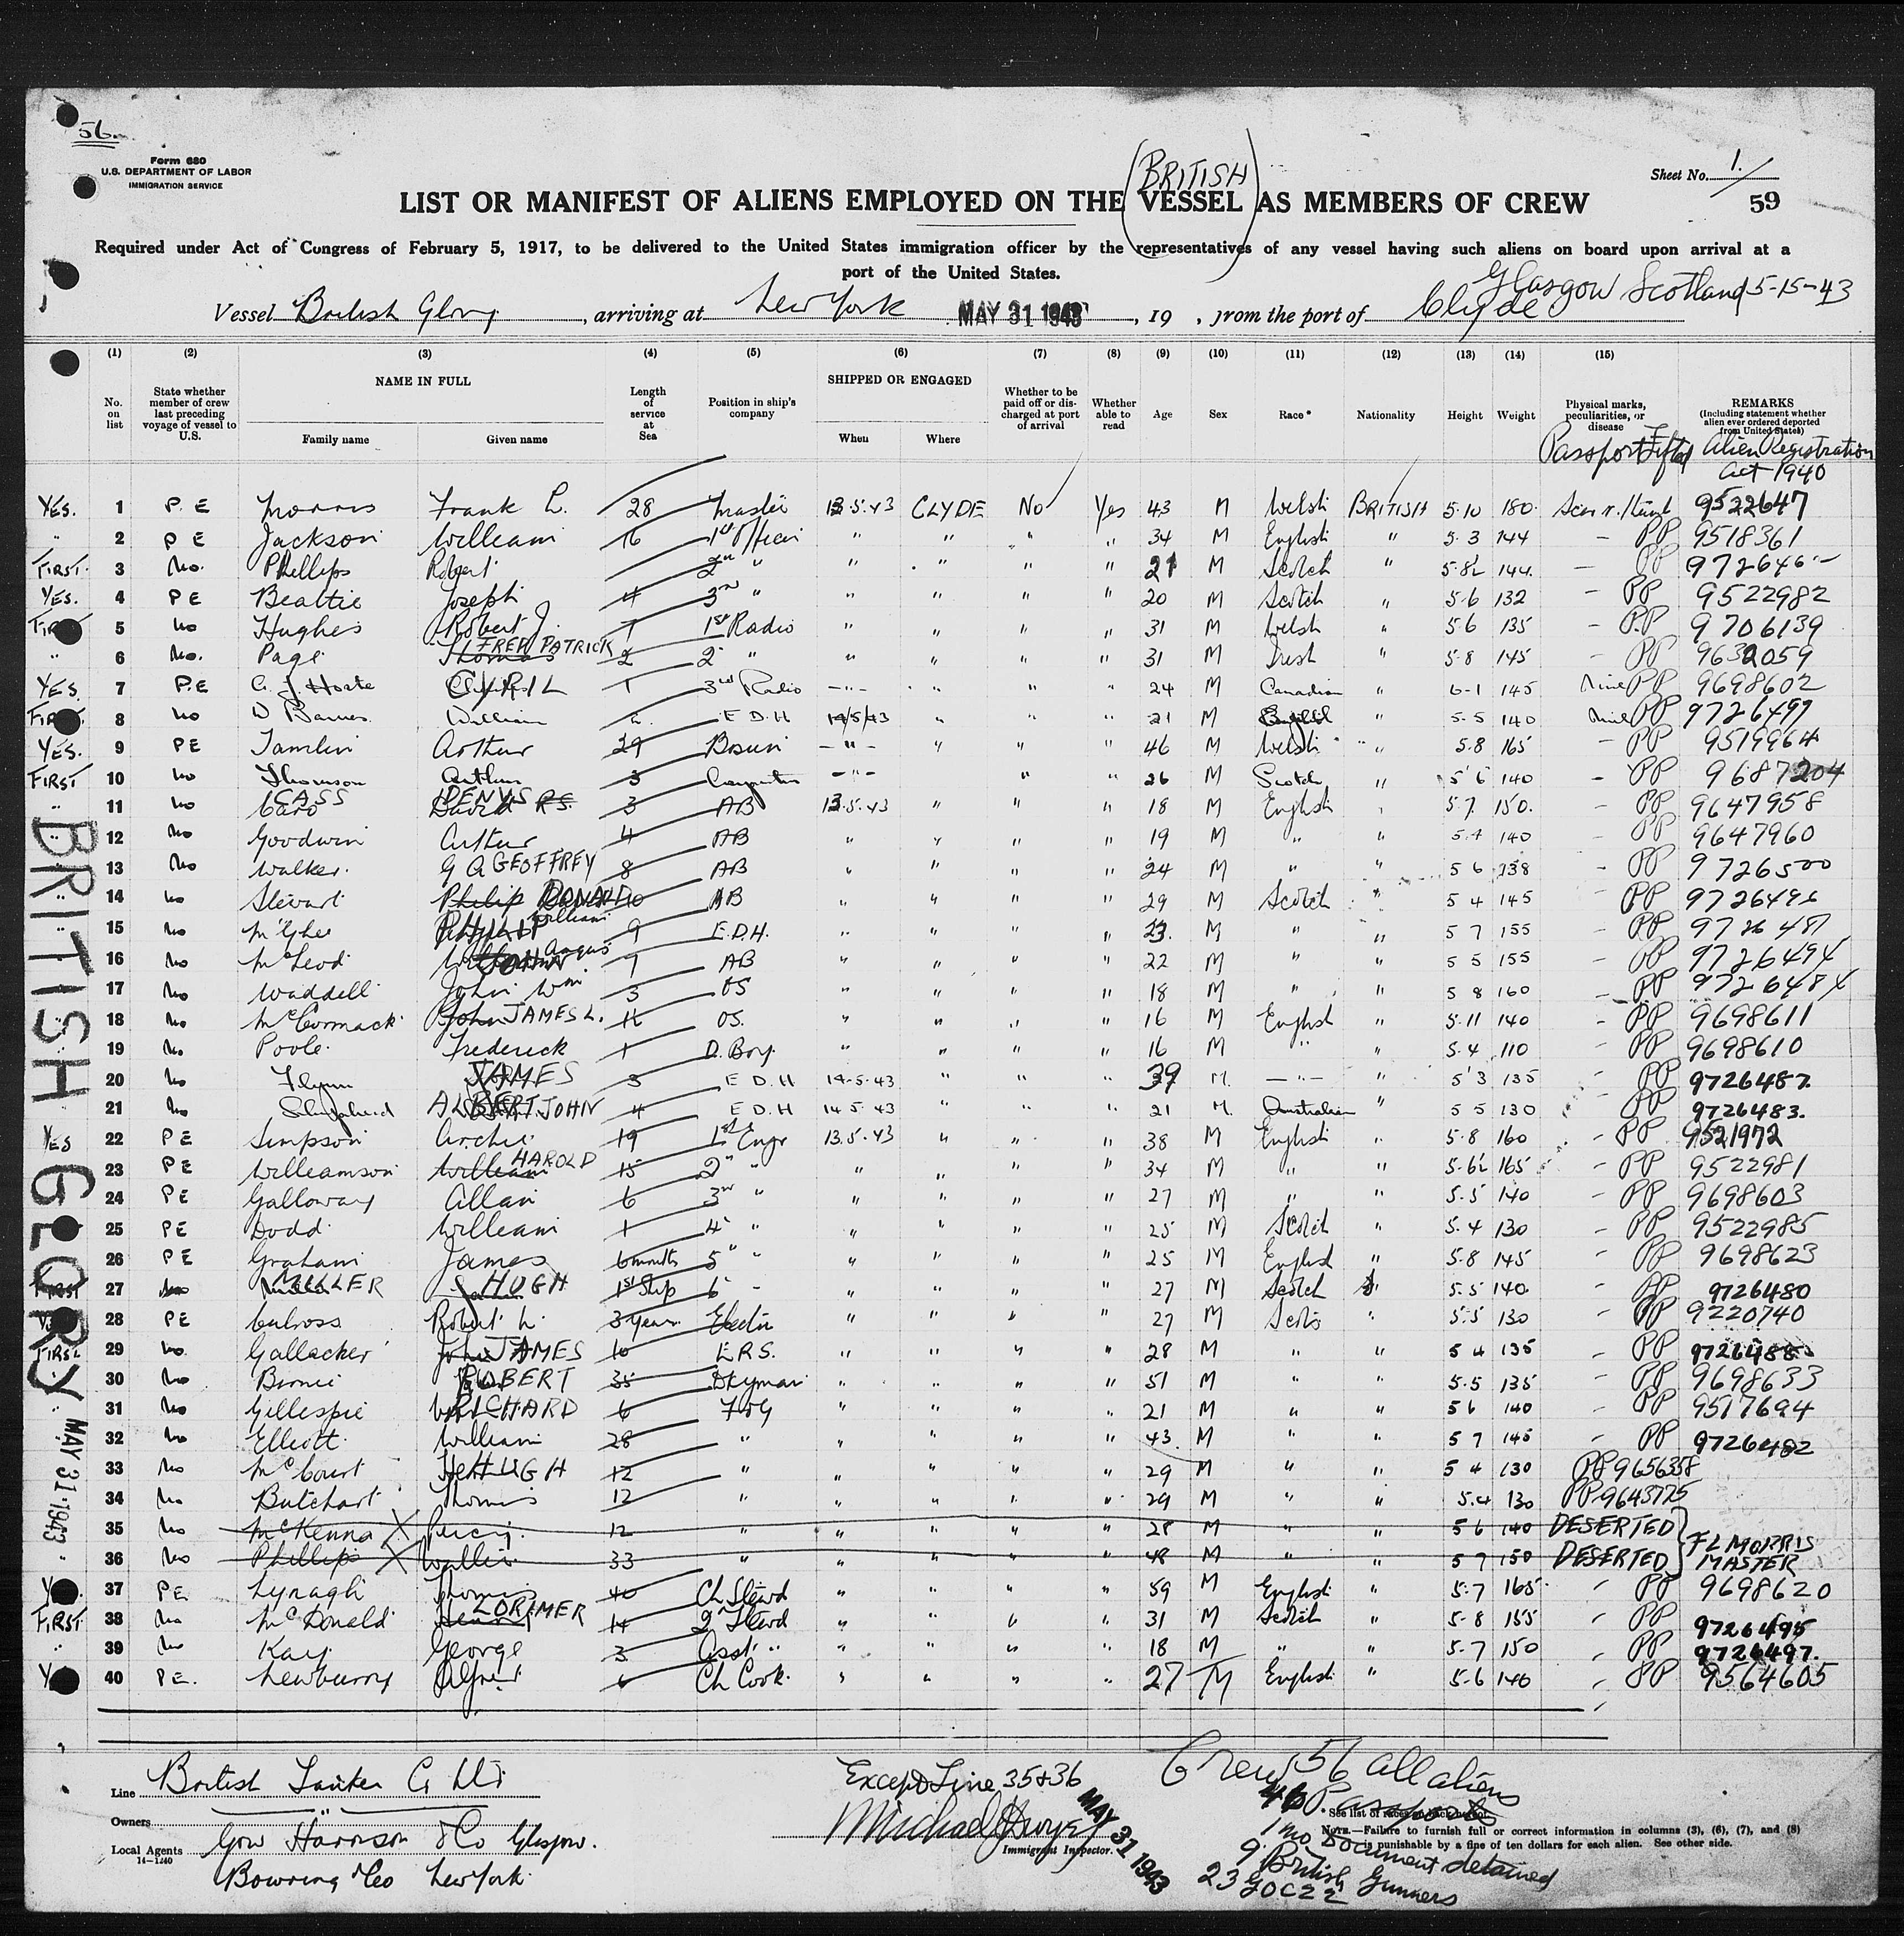 56.
Form 680
U.S. DEPARTMENT OF LABOR
IMMIGRATION SERVICE
Sheet No. 1.
59
(BRITISH)
LIST OR MANIFEST OF ALIENS EMPLOYED ON THE VESSEL AS MEMBERS OF CREW
Required under Act of Congress of February 5, 1917, to be delivered to the United States immigration officer by the representatives of any vessel having such aliens on board upon arrival at a
port of the United States.
Glasgow Scotland 5-15-43
Vessel British Glory, arriving at New York MAY 31 1943, 19 , from the port of Clyde
(1) (2) (3) (4) (5) (6) (7) (8) (9) (10) (11) (12) (13) (14) (15)
No. on list
State whether member of crew last preceding voyage of vessel to U.S.
NAME IN FULL
Family name Given name
Length of service at Sea
Position in ship's company
SHIPPED OR ENGAGED
When Where
Whether to be paid off or discharged at port of arrival
Whether able to read
Age Sex Race* Nationality Height Weight
Physical marks, peculiarities, or disease
REMARKS
(Including statement whether alien ever ordered deported from United States)
Passport Alien Registration
Act 1940
YES. 1 P.E Morris Frank L. 28 Master 13.5.43 CLYDE No Yes 43 M Welsh BRITISH 5-10 180 9522647
" 2 P E Jackson William 16 1st Officer " " " " 34 M English " 5-3 144 - PP 9518361
FIRST. 3 No. Phillips Robert 2nd " " " " " 21 M Scotch " 5-8½ 144 - PP
YES. 4 P E Beattie Joseph 4 3rd " " " " " 20 M Scotch " 5-6 132 - PP 9522982
FIRST 5 No Hughes Robert J. 1 1st Radio " " " " 31 M Welsh " 5-6 135 - P.P 9706139
" 6 No. Page Thomas FRED PATRICK 2 2 " " " " " 31 M Irish " 5-8 145 - PP 9632059
YES 7 P.E C. J. Hoate CYRIL 1 3rd Radio " " " " 24 M Canadian " 6-1 145 PP 9698602
FIRST. 8 No W Barnes William E D H 14/5/43 " " " 21 M English " 5-5 140 PP 9726499
YES. 9 PE Tamlin Arthur 29 Bosun " " " " 46 M Welsh " 5.8 165 - PP 9519964
FIRST 10 No Thomson Arthur 3 Carpenter " " " 26 M Scotch " 5'6 140 - PP 9687204
" 11 No CASS DENYS 3 AB 13.5.43 " " " 18 M English " 5.7 150 - PP 9647958
12 No Goodwin Arthur 4 AB " " " " 19 M " " 5.4 140 - PP 9647960
13 No Walker G A GEOFFREY 8 AB " " " " 24 M " " 5 6 138 - PP 9726500
14 No Stewart Philip DONALD 10 AB " " " " 29 M Scotch " 5 4 145 - PP
15 No McGhee PHILIP William 9 E.D.H. " " " " 23 M " " 5 7 155 - PP
16 No McLeod JOHN Angus 1 AB " " " " 22 M " " 5 5 155 - PP 9726494
17 No Waddell John Wm 3 OS " " " " 18 M " " 5 8 160 - PP 9726484
18 No McCormack John JAMES L. OS. " " " " 16 M English " 5.11 140 - PP 9698611
19 No Poole Frederick 1 D. Boy " " " " 16 M " " 5.4 110 - PP 9698610
20 No Flynn JAMES 3 E D H 14-5-43 " " " 39 M " " 5'3 135 PP 9726487
21 No Shepherd ALBERT JOHN 4 E D H 14.5.43 " " " 21 M Australian " 5 5 130 PP 9726483.
YES 22 P E Simpson Archie 19 1st Engr 13.5.43 " " " 38 M English " 5.8 160 - PP 9521972
23 PE Williamson William HAROLD 15 2nd " " " " " 34 M " " 5-6½ 165 - PP 9522981
24 PE Galloway Allan 6 3rd " " " " " 27 M " " 5.5 140 - PP 9698603
25 PE Dodd William 1 4 " " " " " 25 M Scotch " 5.4 130 - PP 9522985
26 PE Graham James 6 months 5 " " " " " 25 M English " 5-8 145 PP 9698623
FIRST 27 No MILLER HUGH 1st Ship 6 " " " " 27 M Scotch " 5.5 140 - PP 9726480
28 PE Culross Robert 3 years " " " " 27 M Scots " 5.5 130 - PP 9220740
FIRST 29 No. Gallacher John JAMES 10 E.R.S. " " " " 28 M " " 5 4 135 - PP
30 No Birnie ROBERT 35 Dkyman " " " " 51 M " " 5.5 135 - PP 9698633
31 No Gillespie RICHARD 6 F&G " " " " 21 M " " 5 6 140 - PP 9517694
32 No Elliott William 28 " " " " " 43 M " " 5 7 145 - PP 9726482
33 No McCourt HUGH 12 " " " " " 29 M " " 5 4 130 PP 9656358
34 No Butchart Thomas 12 " " " " " 29 M " " 5.4 130 PP 9643775
35 No McKenna X Percy 12 " " " " " 28 M " " 5 6 140 DESERTED
36 No Phillips X Walter 33 " " " " " 48 M " " 5 7 150 DESERTED
F L MORRIS
MASTER
37 P E. Lynagh Thomas 40 Ch Steward " " " " 59 M English " 5.7 165 - PP 9698620
FIRST 38 No McDonald LORIMER 14 2nd Steward " " " " 31 M Scotch " 5-8 155 - PP 9726495
" 39 No Kay George 3 Asst. " " " " " 18 M " " 5-7 150 - PP 9726497.
40 P E. Newburry Alfred 6 Ch Cook " " " " 27 M English " 5-6 140 - PP 9564605
BRITISH GLORY
MAY 31 1943
Line British Tanker Co Ltd
Owners "
Local Agents Gow Harrison & Co Glasgow.
14-1240
Bowring & Co New York
Except Line 35&36
Michael J Dwyer
Immigrant Inspector.
MAY 31 1943
Crew 56 all aliens
46 Passports
1 no Document detained
9 British Gunners
* See list of races on back hereof.
NOTE.—Failure to furnish full or correct information in columns (3), (6), (7), and (8)
is punishable by a fine of ten dollars for each alien. See other side.